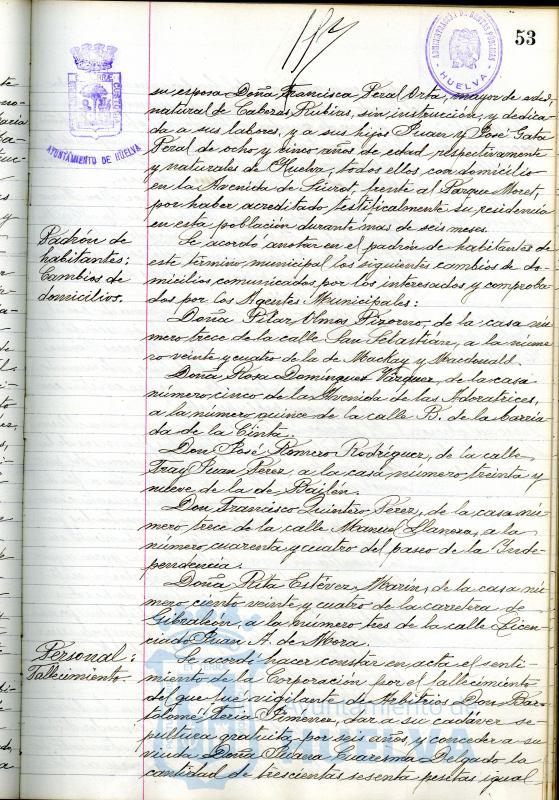 53
ADMINISTRACIÓN DE RENTAS PÚBLICAS
HUELVA
AYUNTAMIENTO DE HUELVA
su esposa Doña Francisca Peral Orta, mayor de edad
natural de Cabezas Rubias, sin instrucción, y dedica-
da a sus labores, y a sus hijos Juan y José Gata
Peral de ocho y cinco años de edad respectivamente
y naturales de Huelva, todos ellos con domicilio
en la Avenida de Siurot, frente al Parque Moret,
por haber acreditado testificalmente su residencia
en esta población durante mas de seis meses.
Padrón de
habitantes:
Cambios de
domicilios.
Se acordó anotar en el padrón de habitantes de
este término municipal los siguientes cambios de do-
micilios, comunicados por los interesados y comproba-
dos por los Agentes Municipales:
Doña Pilar Olmos Pizorno, de la casa nú-
mero trece de la calle San Sebastián, a la núme-
ro veinte y cuatro de la de Mackay y Macdonald.
Doña Rosa Domínguez Vázquez, de la casa
número cinco de la Avenida de las Adoratrices,
a la número quince de la calle B. de la barria-
da de la Cinta.
Don José Romero Rodríguez, de la calle
Fray Juan Pérez a la casa número treinta y
nueve de la de Bailén.
Don Francisco Quintero Pérez, de la casa nú-
mero trece de la calle Manuel Llanera, a la
número cuarenta y cuatro del paseo de la Inde-
pendencia.
Doña Rita Estévez Marín, de la casa nú-
mero ciento veinte y cuatro de la carretera de
Gibraleón, a la número tres de la calle Licen-
ciado Juan A. de Mora.
Personal:
Fallecimiento.
Se acordó hacer constar en acta el senti-
miento de la Corporación por el fallecimiento
del que fué vigilante de Arbitrios, Don Bar-
tolomé Feria Jimenez, dar a su cadaver se-
pultura gratuita por seis años y conceder a su
viuda Doña Juana Cuaresma Delgado la
cantidad de trescientas sesenta pesetas igual-
Ayuntamiento de
HUELVA